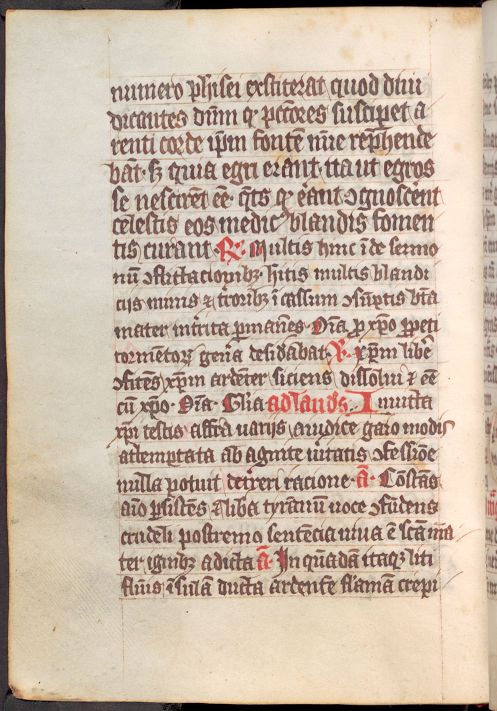 numero phisei extiterat quod dnm
dicantes dnm qz pctores susciperet a
renti corde ipm fontem mie rephende
bat. sz quia egri erant. ita ut egros
se nescirent ee. qtus qz erant ognoscent
celestis eos medicus blandis fomen
tis curant. R. Multis hinc inde sermo
num oflictacionibz. hitis multis blandi
cijs minis et terroribz in cassum osumptis bta
mater intrita permanes. Oia pro xpo ppeti
tormentorz genera desidabat. V. xpm libere
ofitens xpm ardenter siciens dissolui et ee
cu xpo. Oia. Glia ad laudes. Inuicta
xpi testis affra uarijs a iudice gaio modis
attemptata ab agnite uitatis ofessione
nulla potuit deteri racione. a. Constans
aio psistens et liba tyrannu uoce ofudens
crudeli postremo sentencia uiua e scam ma
ter ignibz adicta a. In quadam itaqz liti
fluuis insulam ducta ardente flamam crepi